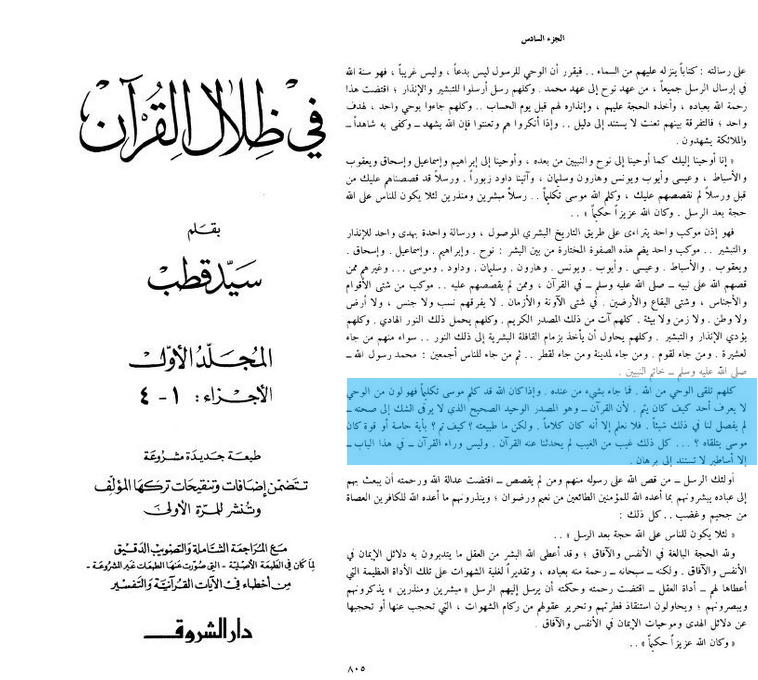 في ظلال القرآن
بقلم
سيد قطب
المجلد الأول
الأجزاء: ١-٤
طبعة جديدة مشروعة
تتضمن إضافات وتنقيحات تركها المؤلف
وتنشر للمرة الأولى
مع المراجعة الشاملة والتصويب الدقيق
لما كان في الطبعة الأصلية - التي صورت عنها الطبعات غير المشروعة -
من أخطاء في الآيات القرآنية والتفسير
دار الشروق
الجزء السادس
على رسالته : كتاباً ينزله عليهم من السماء . . فيقرر أن الوحي للرسول ليس بدعاً ، وليس غريباً ، فهو سنة الله
في إرسال الرسل جميعاً ، من عهد نوح إلى عهد محمد . وكلهم رسل أرسلوا للتبشير والإنذار ؛ اقتضت هذا
رحمة الله بعباده ، وأخذه الحجة عليهم ، وإنذاره لهم قبل يوم الحساب . . وكلهم جاءوا بوحي واحد ، لهدف
واحد ؛ فالتفرقة بينهم تعنت لا يستند إلى دليل . . وإذا أنكروا هم وتعنتوا فإن الله يشهد ــ وكفى به شاهداً ــ
والملائكة يشهدون .
« إنا أوحينا إليك كما أوحينا إلى نوح والنبيين من بعده ، وأوحينا إلى إبراهيم وإسماعيل وإسحاق ويعقوب
والأسباط ، وعيسى وأيوب ويونس وهارون وسليمان ، وآتينا داود زبوراً . ورسلاً قد قصصناهم عليك من
قبل ورسلاً لم نقصصهم عليك ، وكلم الله موسى تكليماً . . رسلاً مبشرين ومنذرين لئلا يكون للناس على الله
حجة بعد الرسل . وكان الله عزيزاً حكيماً » . .
فهو إذن موكب واحد يتراءى على طريق التاريخ البشري الموصول ، ورسالة واحدة بهدى واحد للإنذار
والتبشير . . موكب واحد يضم هذه الصفوة المختارة من بين البشر : نوح . وإبراهيم . وإسماعيل . وإسحاق .
ويعقوب . والأسباط . وعيسى . وأيوب . ويونس . وهارون . وسليمان . وداود . وموسى . . . وغيرهم ممن
قصهم الله على نبيه ــ صلى الله عليه وسلم ــ في القرآن ، وممن لم يقصصهم عليه . . موكب من شتى الأقوام
والأجناس ، وشتى البقاع والأرضين . في شتى الآونة والأزمان . لا يفرقهم نسب ولا جنس ، ولا أرض
ولا وطن . ولا زمن ولا بيئة . كلهم آت من ذلك المصدر الكريم . وكلهم يحمل ذلك النور الهادي . وكلهم
يؤدي الإنذار والتبشير . وكلهم يحاول أن يأخذ بزمام القافلة البشرية إلى ذلك النور . . سواء منهم من جاء
لعشيرة . ومن جاء لقوم . ومن جاء لمدينة ومن جاء لقطر . . ثم من جاء للناس أجمعين : محمد رسول الله ــ
صلى الله عليه وسلم ــ خاتم النبيين .
كلهم تلقى الوحي من الله . فما جاء بشيء من عنده . وإذا كان الله قد كلم موسى تكليماً فهو لون من الوحي
لا يعرف أحد كيف كان يتم . لأن القرآن ــ وهو المصدر الوحيد الصحيح الذي لا يرقى الشك إلى صحته ــ
لم يفصل لنا في ذلك شيئاً . فلا نعلم إلا أنه كان كلاماً . ولكن ما طبيعته ؟ كيف تم ؟ بأية حاسة أو قوة كان
موسى يتلقاه ؟ . . . كل ذلك غيب من الغيب لم يحدثنا عنه القرآن . وليس وراء القرآن ــ في هذا الباب ــ
إلا أساطير لا تستند إلى برهان .
أولئك الرسل ــ من قص الله على رسوله منهم ومن لم يقصص ــ اقتضت عدالة الله ورحمته أن يبعث بهم
إلى عباده يبشرونهم بما أعده الله للمؤمنين الطائعين من نعيم ورضوان ؛ وينذرونهم ما أعده الله للكافرين العصاة
من جحيم وغضب . . كل ذلك :
« لئلا يكون للناس على الله حجة بعد الرسل » . .
ولله الحجة البالغة في الأنفس والآفاق ؛ وقد أعطى الله البشر من العقل ما يتدبرون به دلائل الإيمان في
الأنفس والآفاق . ولكنه ــ سبحانه ــ رحمة منه بعباده ، وتقديراً لغلبة الشهوات على تلك الأداة العظيمة التي
أعطاها لهم ــ أداة العقل ــ اقتضت رحمته وحكمته أن يرسل إليهم الرسل « مبشرين ومنذرين » يذكرونهم
ويبصرونهم ؛ ويحاولون استنقاذ فطرتهم وتحرير عقولهم من ركام الشهوات ، التي تحجب عنها أو تحجبها
عن دلائل الهدى وموحيات الإيمان في الأنفس والآفاق .
« وكان الله عزيزاً حكيماً » . .
٨٠٥